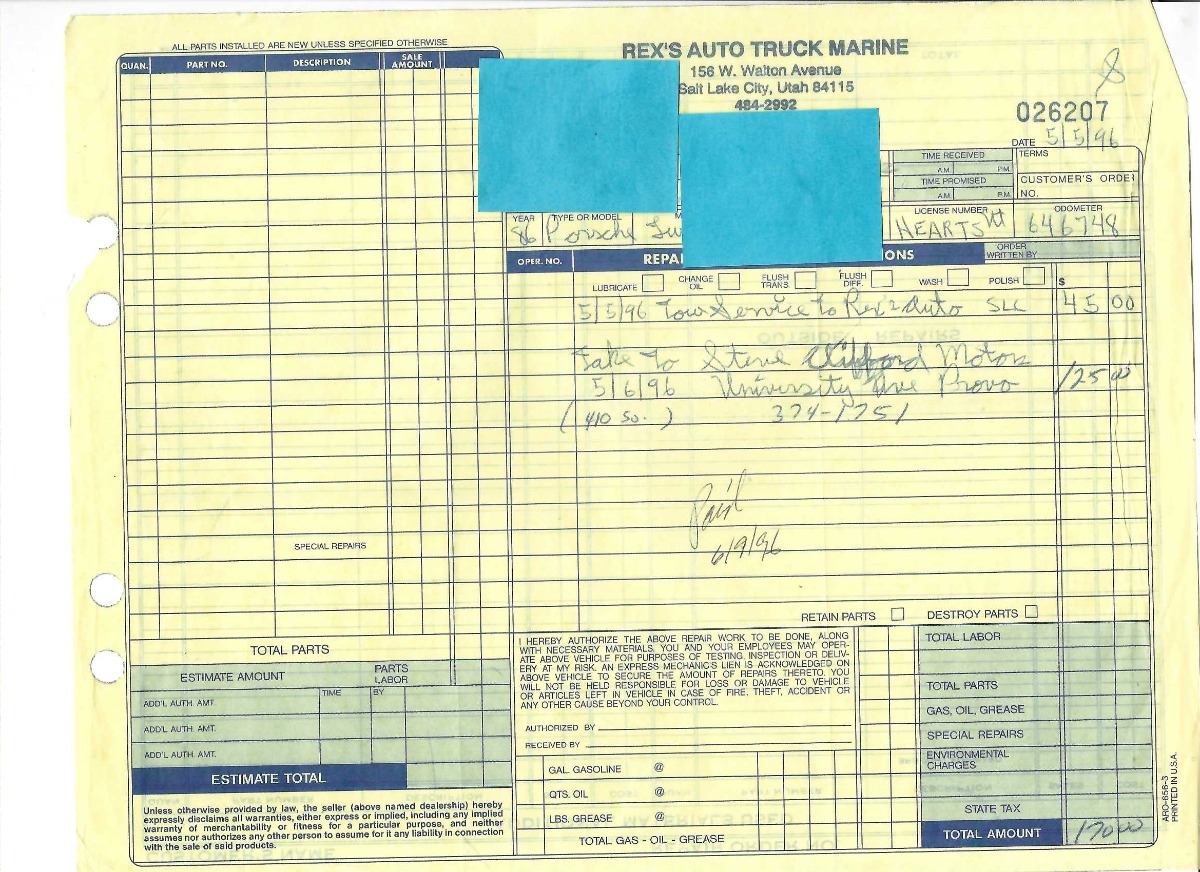 ALL PARTS INSTALLED ARE NEW UNLESS SPECIFIED OTHERWISE
QUAN. PART NO. DESCRIPTION SALE AMOUNT
REX'S AUTO TRUCK MARINE
156 W. Walton Avenue
Salt Lake City, Utah 84115
484-2992
8
026207
DATE 5/5/96
TIME RECEIVED A.M. P.M.
TERMS
TIME PROMISED A.M. P.M.
CUSTOMER'S ORDER NO.
YEAR TYPE OR MODEL LICENSE NUMBER ODOMETER
86 Porsche HEARTS 646748
OPER. NO. REPAI ONS ORDER WRITTEN BY
LUBRICATE CHANGE OIL FLUSH TRANS. FLUSH DIFF. WASH POLISH $
5/5/96 Tow Service to Rex's Auto SLC 45 00
Take to Steve Clifford Motors
5/6/96 University Ave Provo 125 00
(410 So.) 374-1751
Paid
6/9/96
SPECIAL REPAIRS
RETAIN PARTS DESTROY PARTS
TOTAL PARTS
ESTIMATE AMOUNT PARTS LABOR
TIME BY
ADD'L AUTH. AMT.
ADD'L AUTH. AMT.
ADD'L AUTH. AMT.
ESTIMATE TOTAL
Unless otherwise provided by law, the seller (above named dealership) hereby
expressly disclaims all warranties, either express or implied, including any implied
warranty of merchantability or fitness for a particular purpose, and neither
assumes nor authorizes any other person to assume for it any liability in connection
with the sale of said products.
I HEREBY AUTHORIZE THE ABOVE REPAIR WORK TO BE DONE, ALONG
WITH NECESSARY MATERIALS. YOU AND YOUR EMPLOYEES MAY OPER-
ATE ABOVE VEHICLE FOR PURPOSES OF TESTING, INSPECTION OR DELIV-
ERY AT MY RISK. AN EXPRESS MECHANIC'S LIEN IS ACKNOWLEDGED ON
ABOVE VEHICLE TO SECURE THE AMOUNT OF REPAIRS THERETO. YOU
WILL NOT BE HELD RESPONSIBLE FOR LOSS OR DAMAGE TO VEHICLE
OR ARTICLES LEFT IN VEHICLE IN CASE OF FIRE, THEFT, ACCIDENT OR
ANY OTHER CAUSE BEYOND YOUR CONTROL.
AUTHORIZED BY
RECEIVED BY
GAL. GASOLINE @
QTS. OIL @
LBS. GREASE @
TOTAL GAS - OIL - GREASE
TOTAL LABOR
TOTAL PARTS
GAS, OIL, GREASE
SPECIAL REPAIRS
ENVIRONMENTAL CHARGES
STATE TAX
TOTAL AMOUNT 170 00
ARO-658-3
PRINTED IN U.S.A.